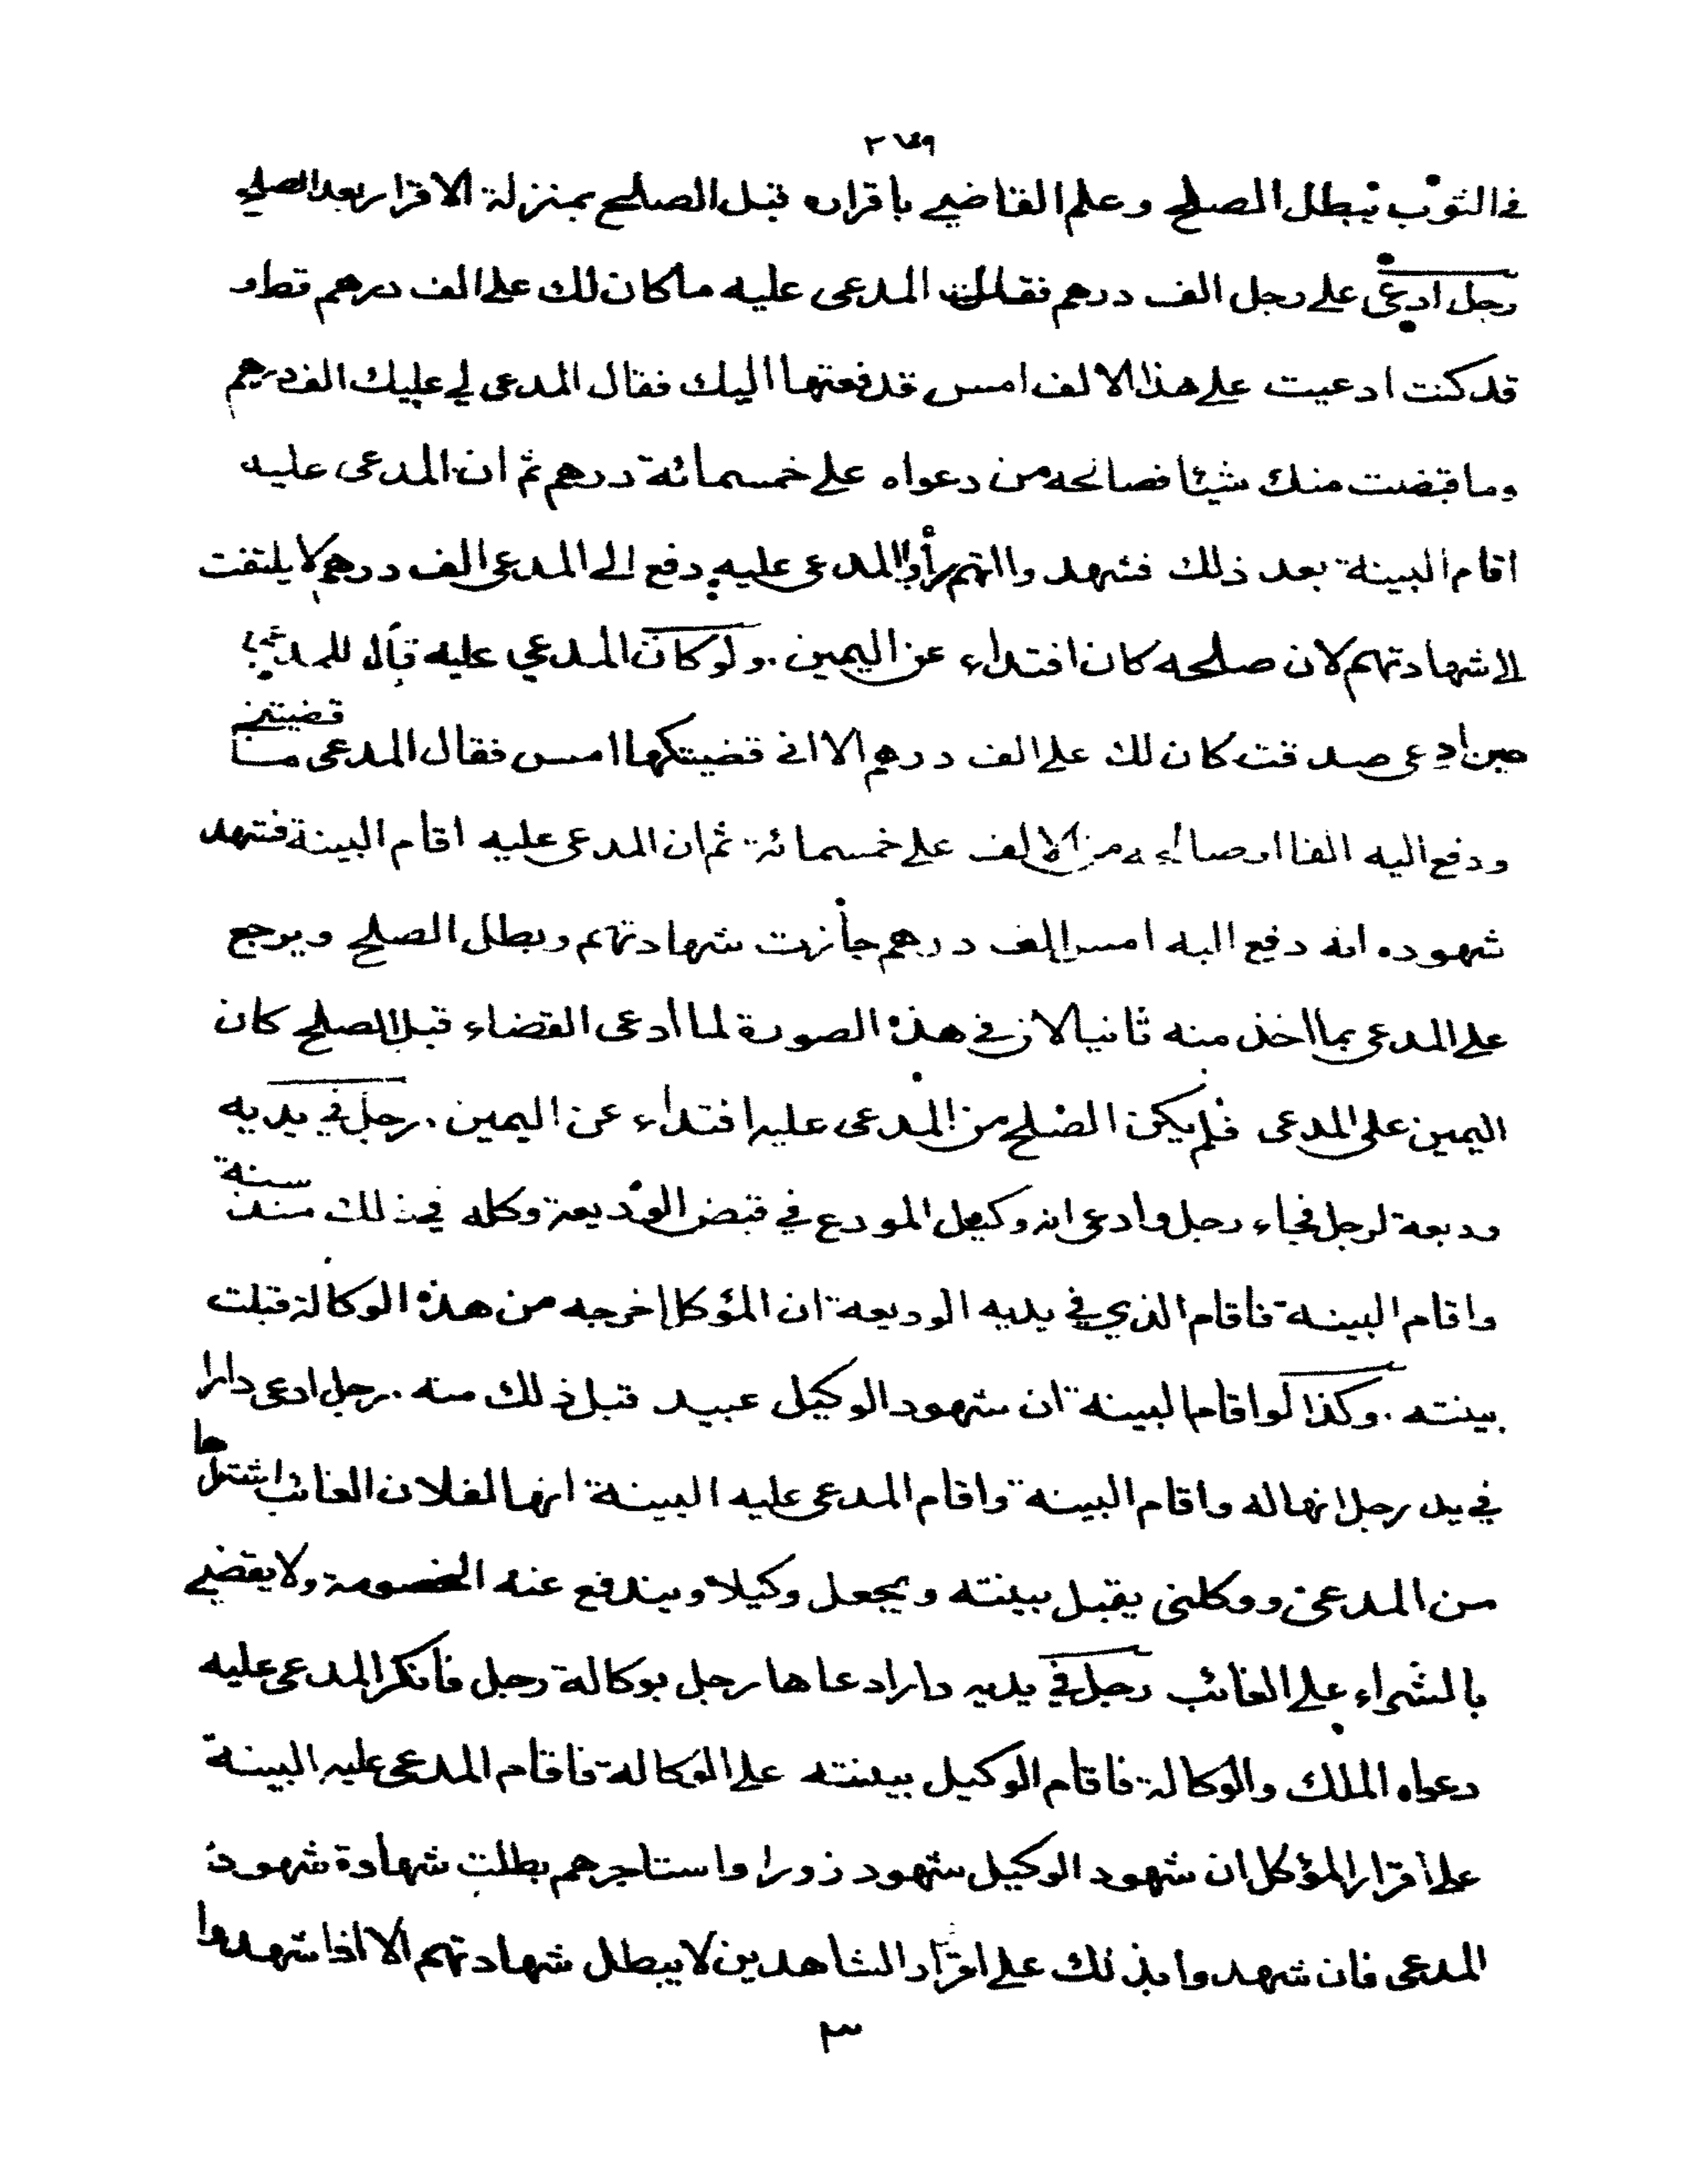 في الثوب يبطل الصلح وعلم القاضي باقراره قبل الصلح بمنزلة الاقرار بعد الصلح
رجل ادعى على رجل الف درهم فقال المدعى عليه ما كان لك على الف درهم قط و
قد كنت ادعيت على هذا الالف امس قد فعتها اليك فقال المدعى لي عليك الف درهم
وما قبضت منك شيئا فصالحه من دعواه على خمسمائة درهم ثم ان المدعى عليه
اقام البينة بعد ذلك فشهد والتهم المدعى عليه دفع الى المدعى الف درهم لا يلتفت
الى شهادتهم لان صلحه كان افتداء عن اليمين . ولو كان المدعي عليه قال للمدعى
قضيتني
حين ادعى صدقت كان لك على الف درهم الا اني قضيتكها امس فقال المدعى ما
ودفع اليه الفا او صالحه من الالف على خمسمائة ثم ان المدعى عليه اقام البينة فشهد
شهوده انه دفع اليه امس الف درهم جازت شهادتهم وبطل الصلح ويرجع
على المدعى بما اخذ منه ثانيا لان في هذه الصورة لما ادعى القضاء قبل الصلح كان
اليمين على المدعى فلم يكن الصلح من المدعى عليه افتداء عن اليمين . رجل في يديه
سنة
وديعة لرجل فجاء رجل وادعى انه وكيل المودع في قبض الوديعة وكله في ذلك منذ
واقام البينة فاقام الذي في يديه الوديعة ان المؤكل اخرجه من هذه الوكالة قبلت
بينته . وكذا لو اقام البينة ان شهود الوكيل عبيد قبل ذلك منه . رجل ادعى دارا
في يد رجل انها له واقام البينة واقام المدعى عليه البينة انها لفلان الغائب اشتراها
من المدعى ووكلنى يقبل بينته ويجعل وكيلا ويندفع عنه الخصومة ولا يقضي
بالشراء على الغائب رجل في يديه دار ادعاها رجل بوكالة رجل فانكر المدعى عليه
دعواه الملك والوكالة فاقام الوكيل بينته على الوكالة فاقام المدعى عليه البينة
على اقرار المؤكل ان شهود الوكيل شهود زورا واستاجرهم بطلت شهادة شهود
المدعى فان شهدوا بذلك على اقرار الشاهدين لا يبطل شهادتهم الا اذا شهدوا